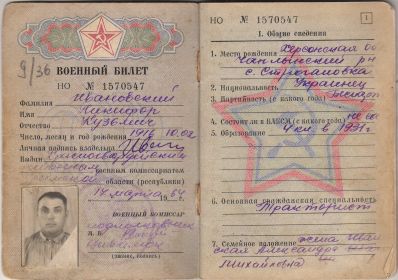 9/36
ВОЕННЫЙ БИЛЕТ
НО № 1570547
Фамилия Ивановский
Имя Никифор
Отчество Кузьмич
Число, месяц и год рождения 1916 10.02
Личная подпись владельца
Выдан
военным комиссариатом
области (республики)
14 марта 1964
ВОЕННЫЙ КОМИССАР
М. П.
(звание, подпись)
НО № 1570547
1
I. Общие сведения
1. Место рождения Херсонская об
Чаплынский р-н
с. Строгановка
2. Национальность Украинец
3. Партийность (с какого года)
4. Состоит ли в ВЛКСМ (с какого года)
5. Образование 4 кл. в 1931 г.
6. Основная гражданская специальность
Тракторист
7. Семейное положение жена Ивановская Александра
Михайловна